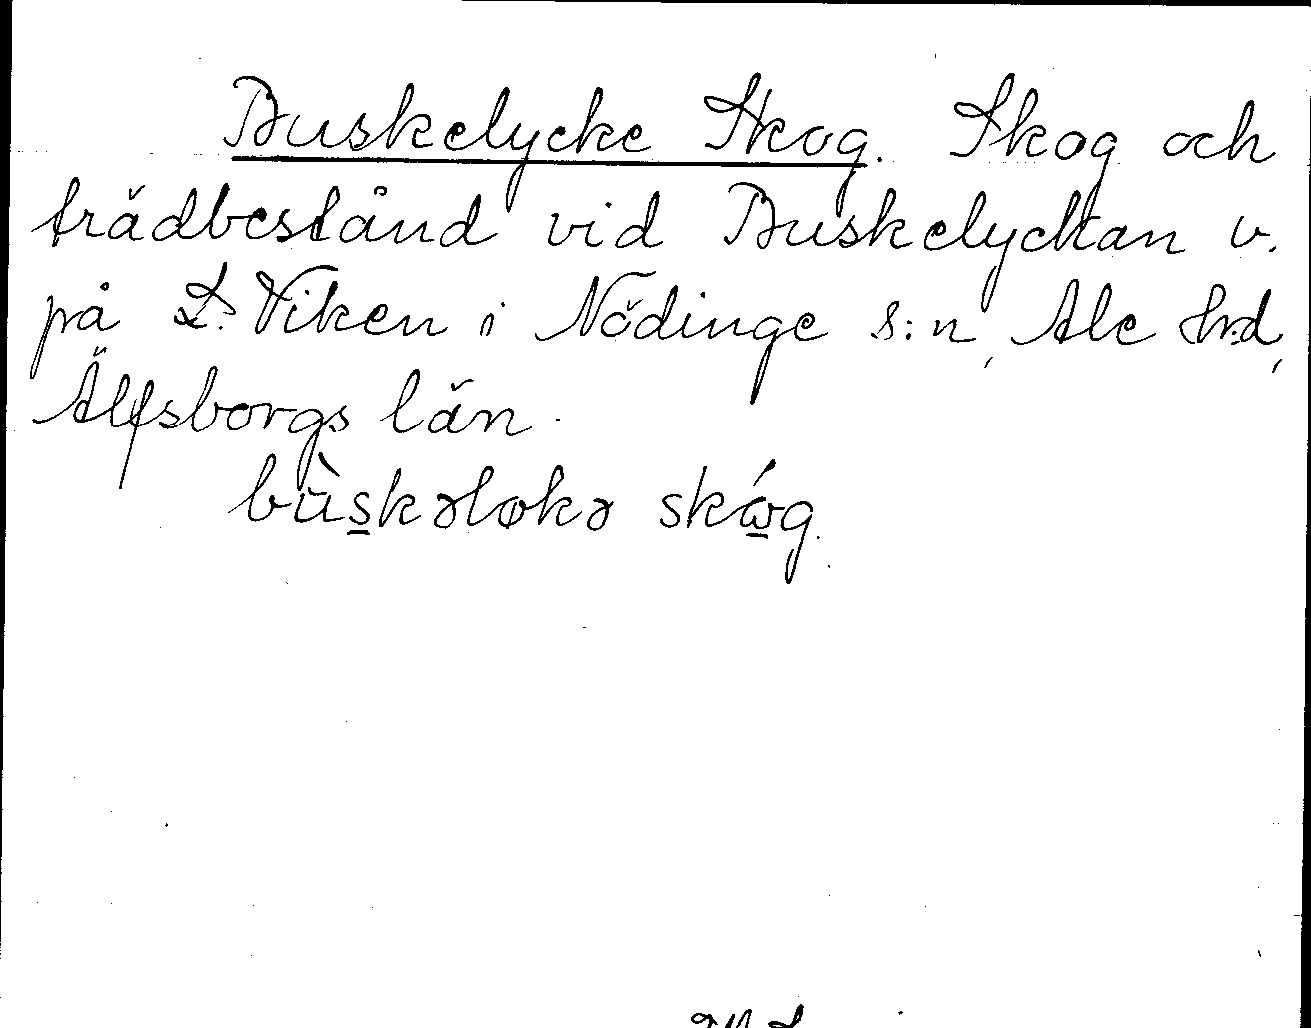 Buskelycke Skog. Skog och
trädbestånd vid Buskelyckan v.
på L. Viken i Nödinge s:n, Ale hrd,
Älfsborgs län.
bùs̲kəløkə skώ̲g.